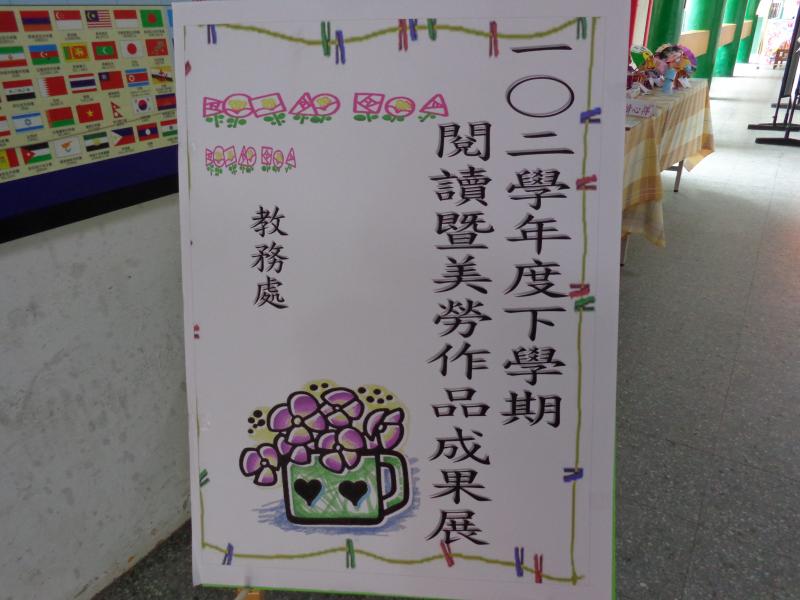 一〇二學年度下學期
閱讀暨美勞作品成果展
教務處